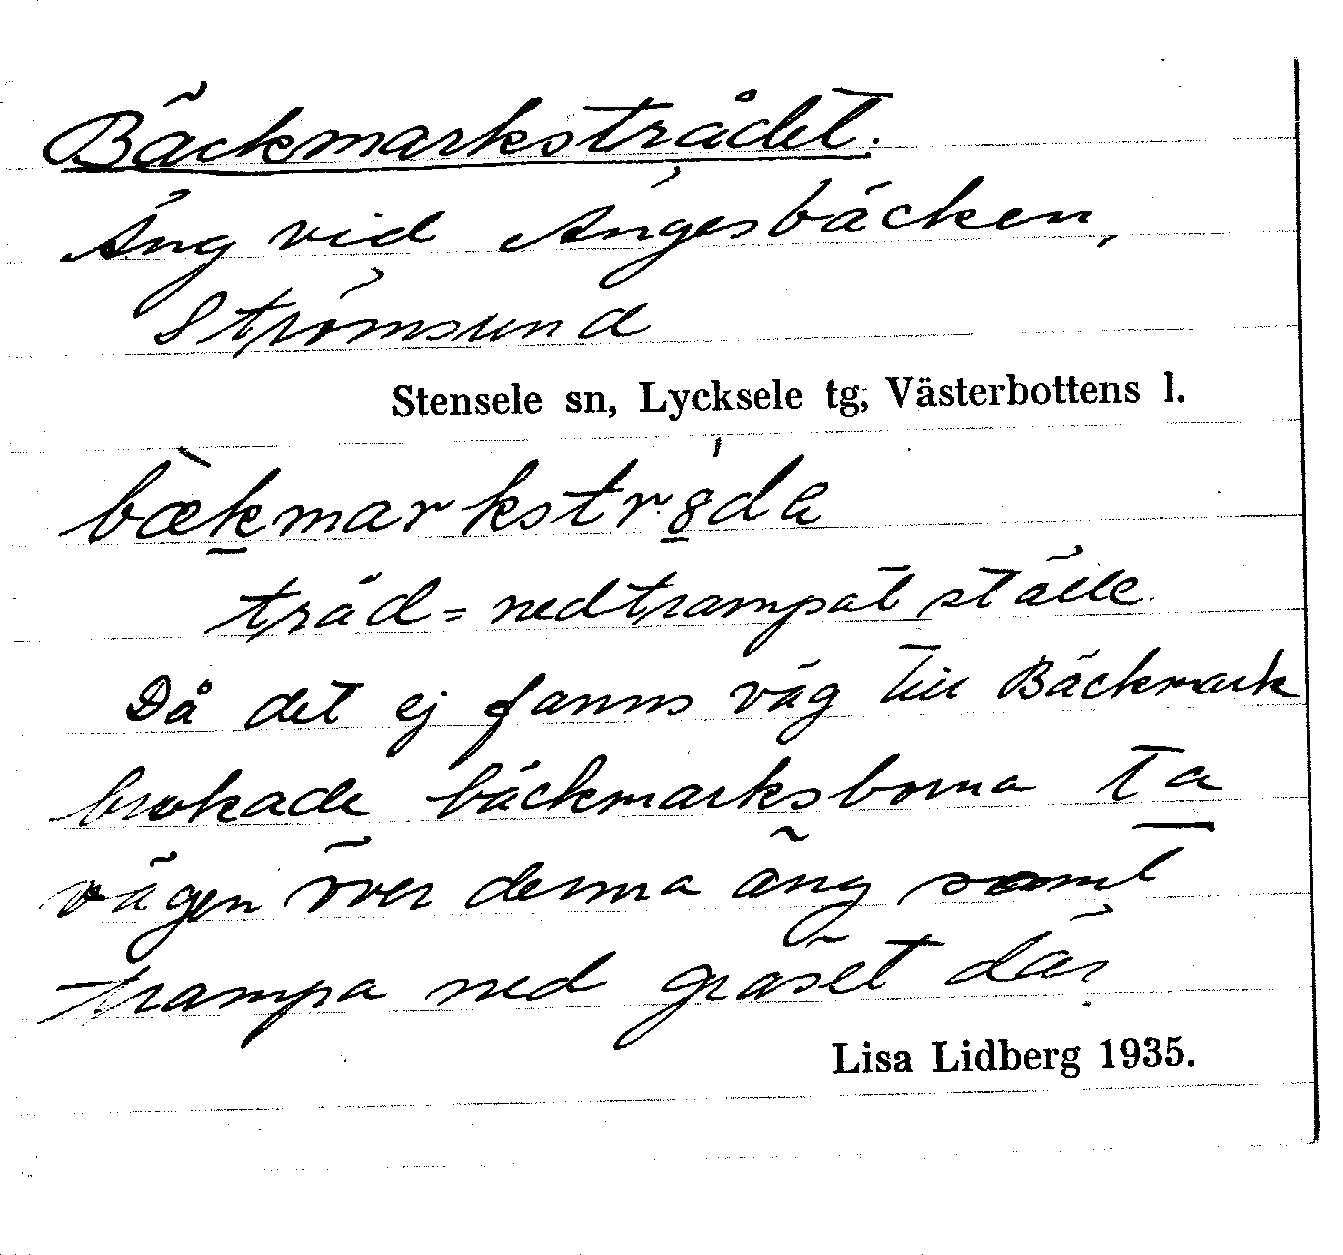 Bäckmarkstrådet.
Äng vid Ångesbäcken,
Strömsund
Stensele sn, Lycksele tg, Västerbottens l.
bæ̀k̠markstr8̠́da
tråd = nedtrampat ställe
Då det ej fanns väg till Bäckmark
brukade bäckmarksborna ta
vägen över denna äng samt
trampa ned gräset där.
Lisa Lidberg 1935.